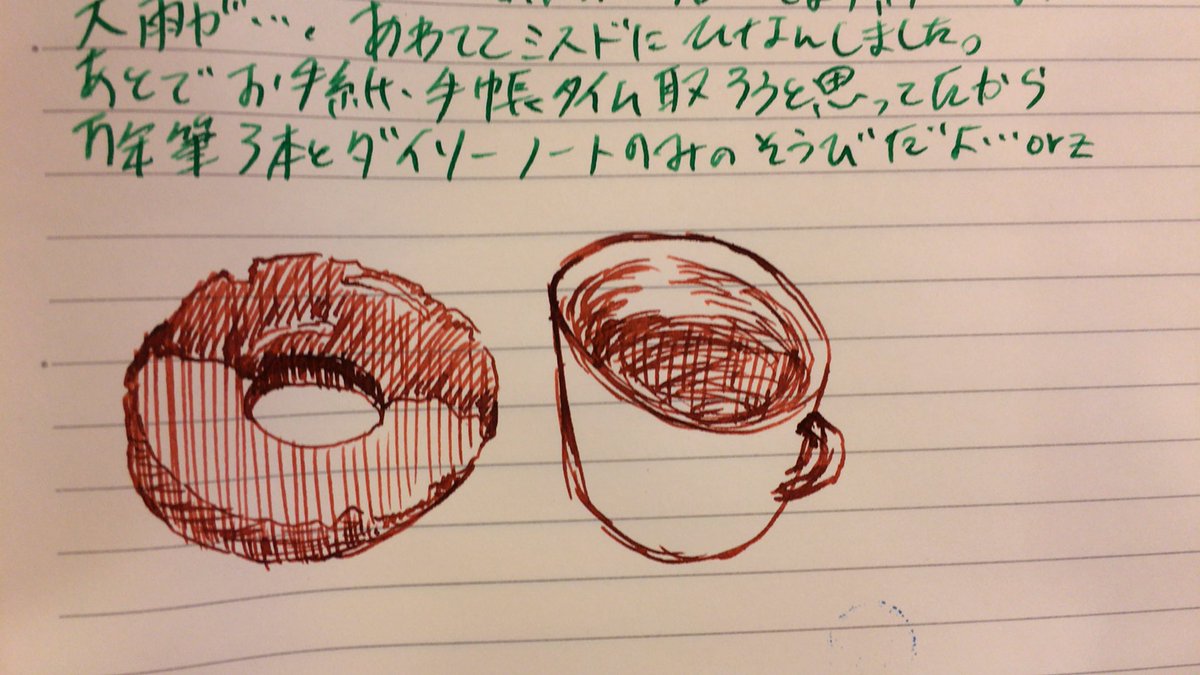 大雨が…、あわててミスドにひなんしました。
あとでお手紙・手帳タイム取ろうと思ってたから
万年筆3本とダイソーノートのみのそうびだよ…orz